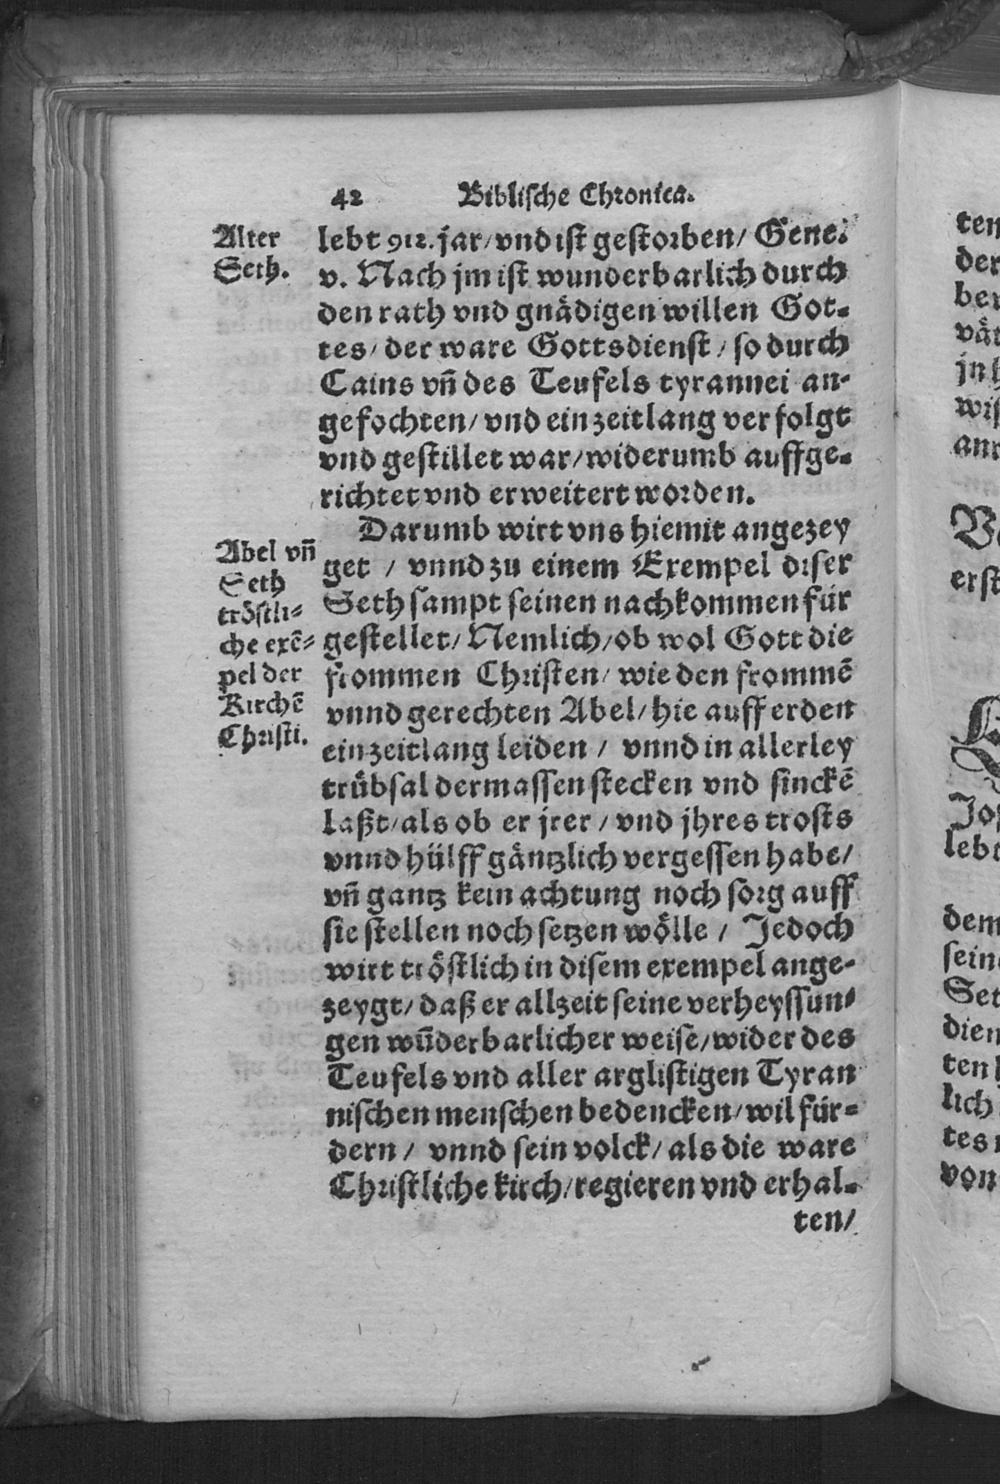 42 Biblische Chronica.
Alter
Seth.
lebt 912. jar/vnd ist gestorben/ Gene.
v. Nach jm ist wunderbarlich durch
den rath vnd gnädigen willen Got-
tes/ der ware Gottsdienst/ so durch
Cains vñ des Teufels tyrannei an-
gefochten/ vnd ein zeitlang verfolgt
vnd gestillet war/widerumb auffge-
richtet vnd erweitert worden.
Darumb wirt vns hiemit angezey
Abel vñ
Seth
tröstli-
che exē-
pel der
Kirchē
Christi.
get / vnnd zu einem Exempel diser
Seth sampt seinen nachkommen für
gestellet/ Nemlich/ob wol Gott die
frommen Christen/ wie den frommē
vnnd gerechten Abel/hie auff erden
ein zeitlang leiden / vnnd in allerley
trübsal dermassen stecken vnd sinckē
laßt/als ob er jrer / vnd jhres trosts
vnnd hülff gäntzlich vergessen habe/
vñ gantz kein achtung noch sorg auff
sie stellen noch setzen wölle / Jedoch
wirt tröstlich in disem exempel ange-
zeygt/ daß er allzeit seine verheyssun-
gen wūderbarlicher weise/wider des
Teufels vnd aller arglistigen Tyran
nischen menschen bedencken/wil für-
dern/ vnnd sein volck/als die ware
Christliche kirch/regieren vnd erhal-
ten/
ten
der
ber
vät
jn h
wis
anr
erst
Jos
lebt
dem
sein
Set
dien
ten
lich
tes
von